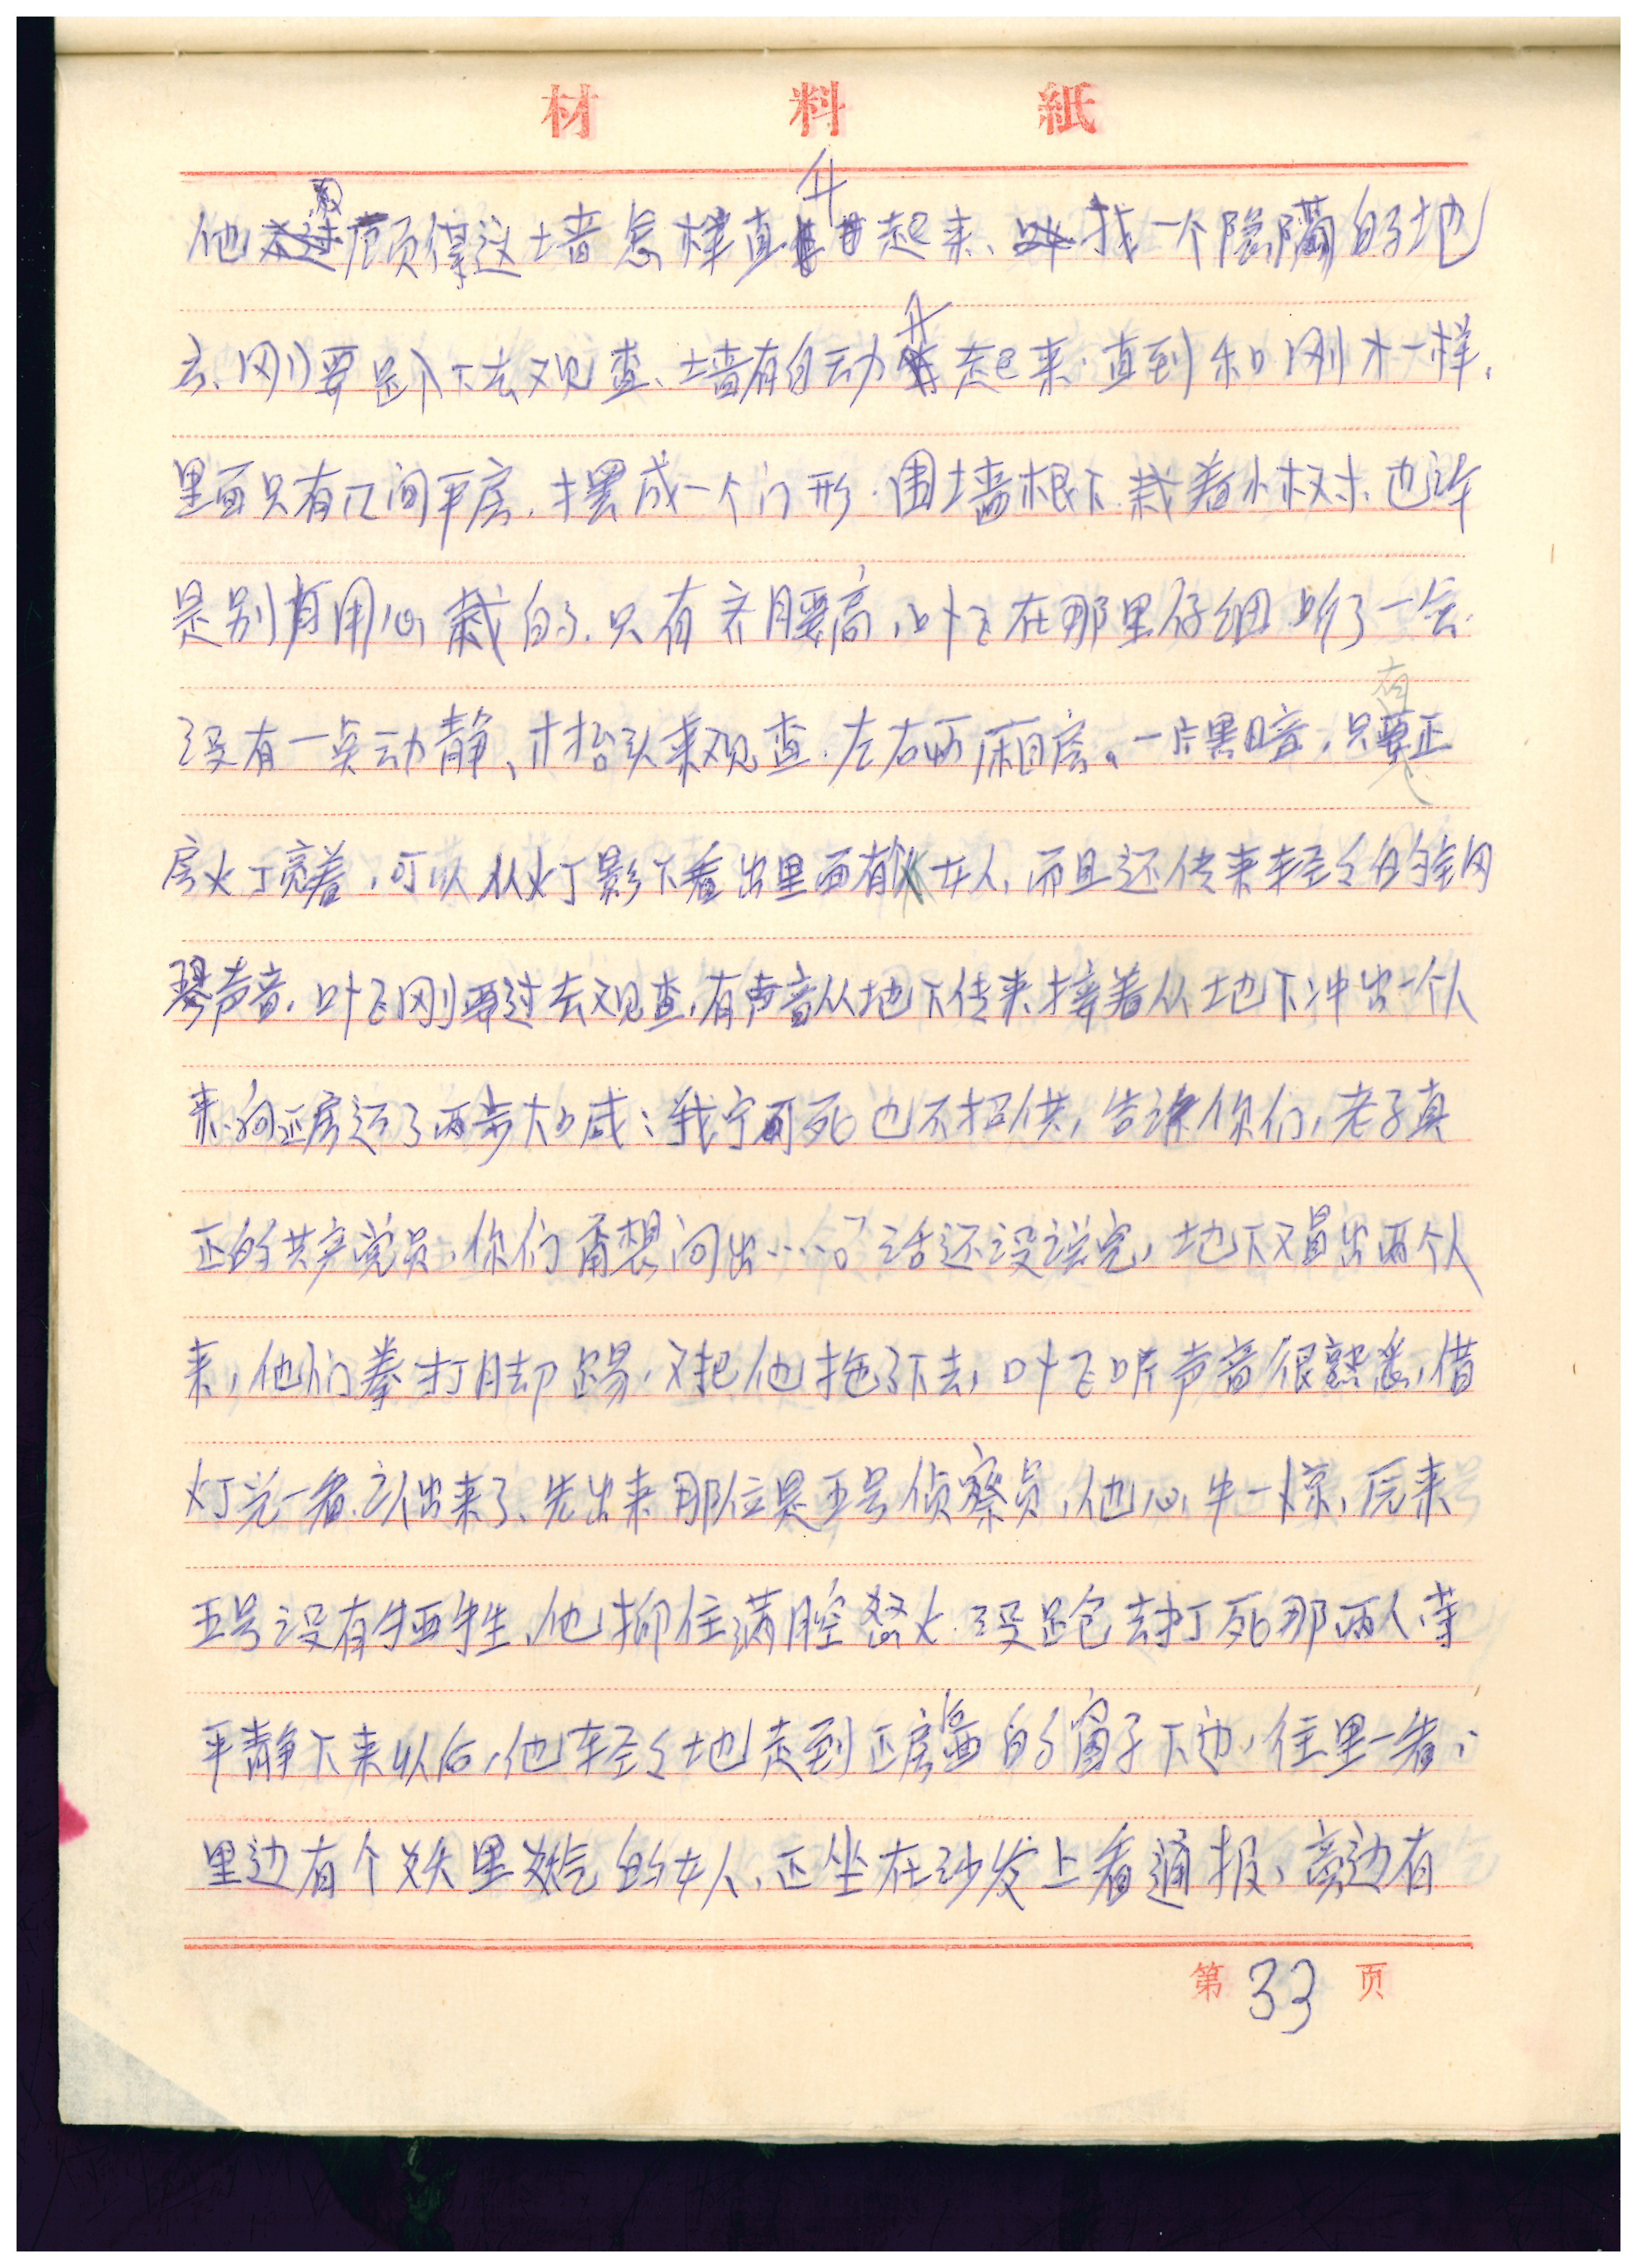 材料紙
他顾得这墙怎样直升起来、找一个隐蔽的地
去、刚要趴下去观查、墙有自动升起来.直到和刚才一样.
里面只有几间平房.摆成一个门形.围墙根下.栽着小树.也许
是别有用心栽的.只有齐腰高,叶飞在那里仔细听了一会.
没有一点动静、才抬头来观查.左右两厢房。一片黑暗,只有正
房灯亮着,可以从灯影下看出里面有个女人,而且还传来轻轻的钢
琴声音.叶飞刚要过去观查,有声音从地下传来.接着从地下冲出一个人
来.向正房迈了两步大喊:我宁可死也不招供,告诉你们,老子真
正的共产党员,你们甭想问出……。话还没说完,地下又冒出两个人
来,他们拳打脚踢,又把他拖了下去,叶飞听声音很熟悉,借
灯光一看.认出来了、先出来那位是五号侦察员,他心中一惊,原来
五号没有牺牲,他抑住满腔怒火.没跑去打死那两人.等
平静下来以后,他轻轻地走到正房的窗子下边,往里一看,
里边有个妖里妖气的女人,正坐在沙发上看通报、旁边有
第33页